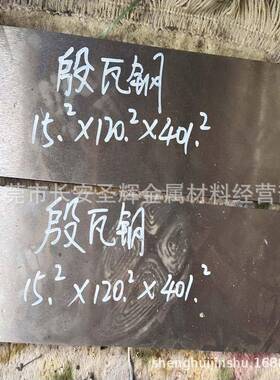 殷瓦钢
15.²×120.²×401.²
莞市长安圣辉金属材料经营
殷瓦钢
15.²×120.²×401.²
shenghuijinshu.1688.com